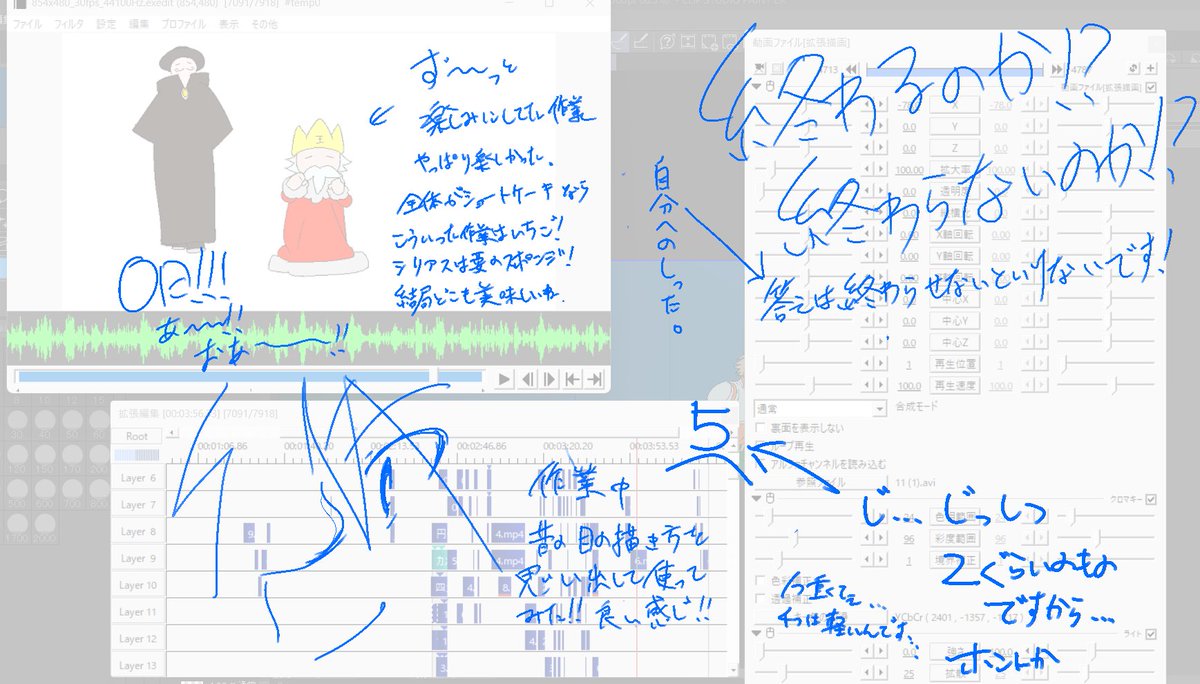 854x480_30fps_44100Hz.exedit (854,480) [7091/7918] #temp0
ファイル フィルタ 設定 編集 プロファイル 表示 その他
ず〜っと
楽しみにしてた作業
やっぱり楽しかった、
全体がショートケーキなら
こういった作業はいちご!
シリアスは要のスポンジ!
結局どこも美味しいね.
OP!!!
あ〜〜!!
おあ〜〜!!
自分へのしった。
終わるのか!?
終わらないのか!?
答えは終わらせないといけないです!
動画ファイル[拡張描画]
X
Y 0.0
Z 0.0
100.00 拡大率
透明度
X軸回転
Y軸回転
中心X
0.0 中心Y 0.0
0.0 中心Z 0.0
1 再生位置 1
100.0 再生速度 100.0
通常 合成モード
裏面を表示しない
ループ再生
アルファチャンネルを読み込む
参照ファイル 11 (1).avi
クロマキー
96 彩度範囲 96
1 境界補正
YCbCr ( 2401, -1357,
ライト
25 拡散 25
拡張編集 [00:03:56. [7091/7918]
Root
00:01:06.86 00:02:46.86 00:03:20.20 00:03:53.53
Layer 6
Layer 7
Layer 8
Layer 9
Layer 10
Layer 11
Layer 12
Layer 13
4.mp4
4.mp4
作業中
昔の目の描き方を
思い出して使って
みた!! 良い感じ!!
5
じ… じっしつ
2ぐらいのもの
ですから…
ホントか